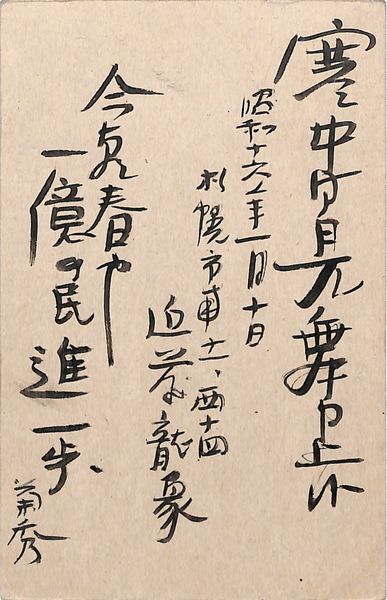 寒中御見舞申上候
昭和十六年一月十日
札幌市南十一、西十四
近龍象
今春や
一億の民進一歩、
菊秀